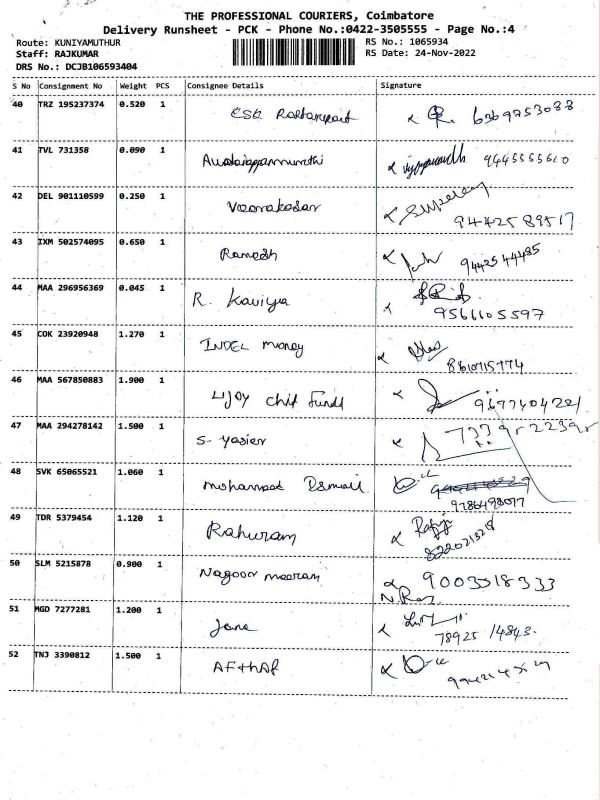 THE PROFESSIONAL COURIERS, Coimbatore
Delivery Runsheet - PCK - Phone No.:0422-3505555 - Page No.:4
Route: KUNIYAMUTHUR RS No.: 1065934
Staff: RAJKUMAR RS Date: 24-Nov-2022
DRS No.: DCJB106593404
S No Consignment No Weight PCS Consignee Details Signature
40 TRZ 195237374 0.520 1 6369753088
41 TVL 731358 0.090 1 9445555610
42 DEL 901110599 0.250 1 9442589517
43 IXM 502574095 0.650 1 Ramesh 9442544485
44 MAA 296956369 0.045 1 R. Kaviya 9566105597
45 COK 23920948 1.270 1 INDEL money 8610715774
46 MAA 567850883 1.900 1 chit funds 9677404221
47 MAA 294278142 1.500 1 S- yasier
48 SVK 65065521 1.060 1 mohamed Ismail
9786498077
49 TDR 5379454 1.120 1 Rahuram
50 SLM 5215878 0.900 1 Nagoor meeran 9003518333
51 MGD 7277281 1.200 1 Jane 78925 14843.
52 TNJ 3390812 1.500 1 AFthAf